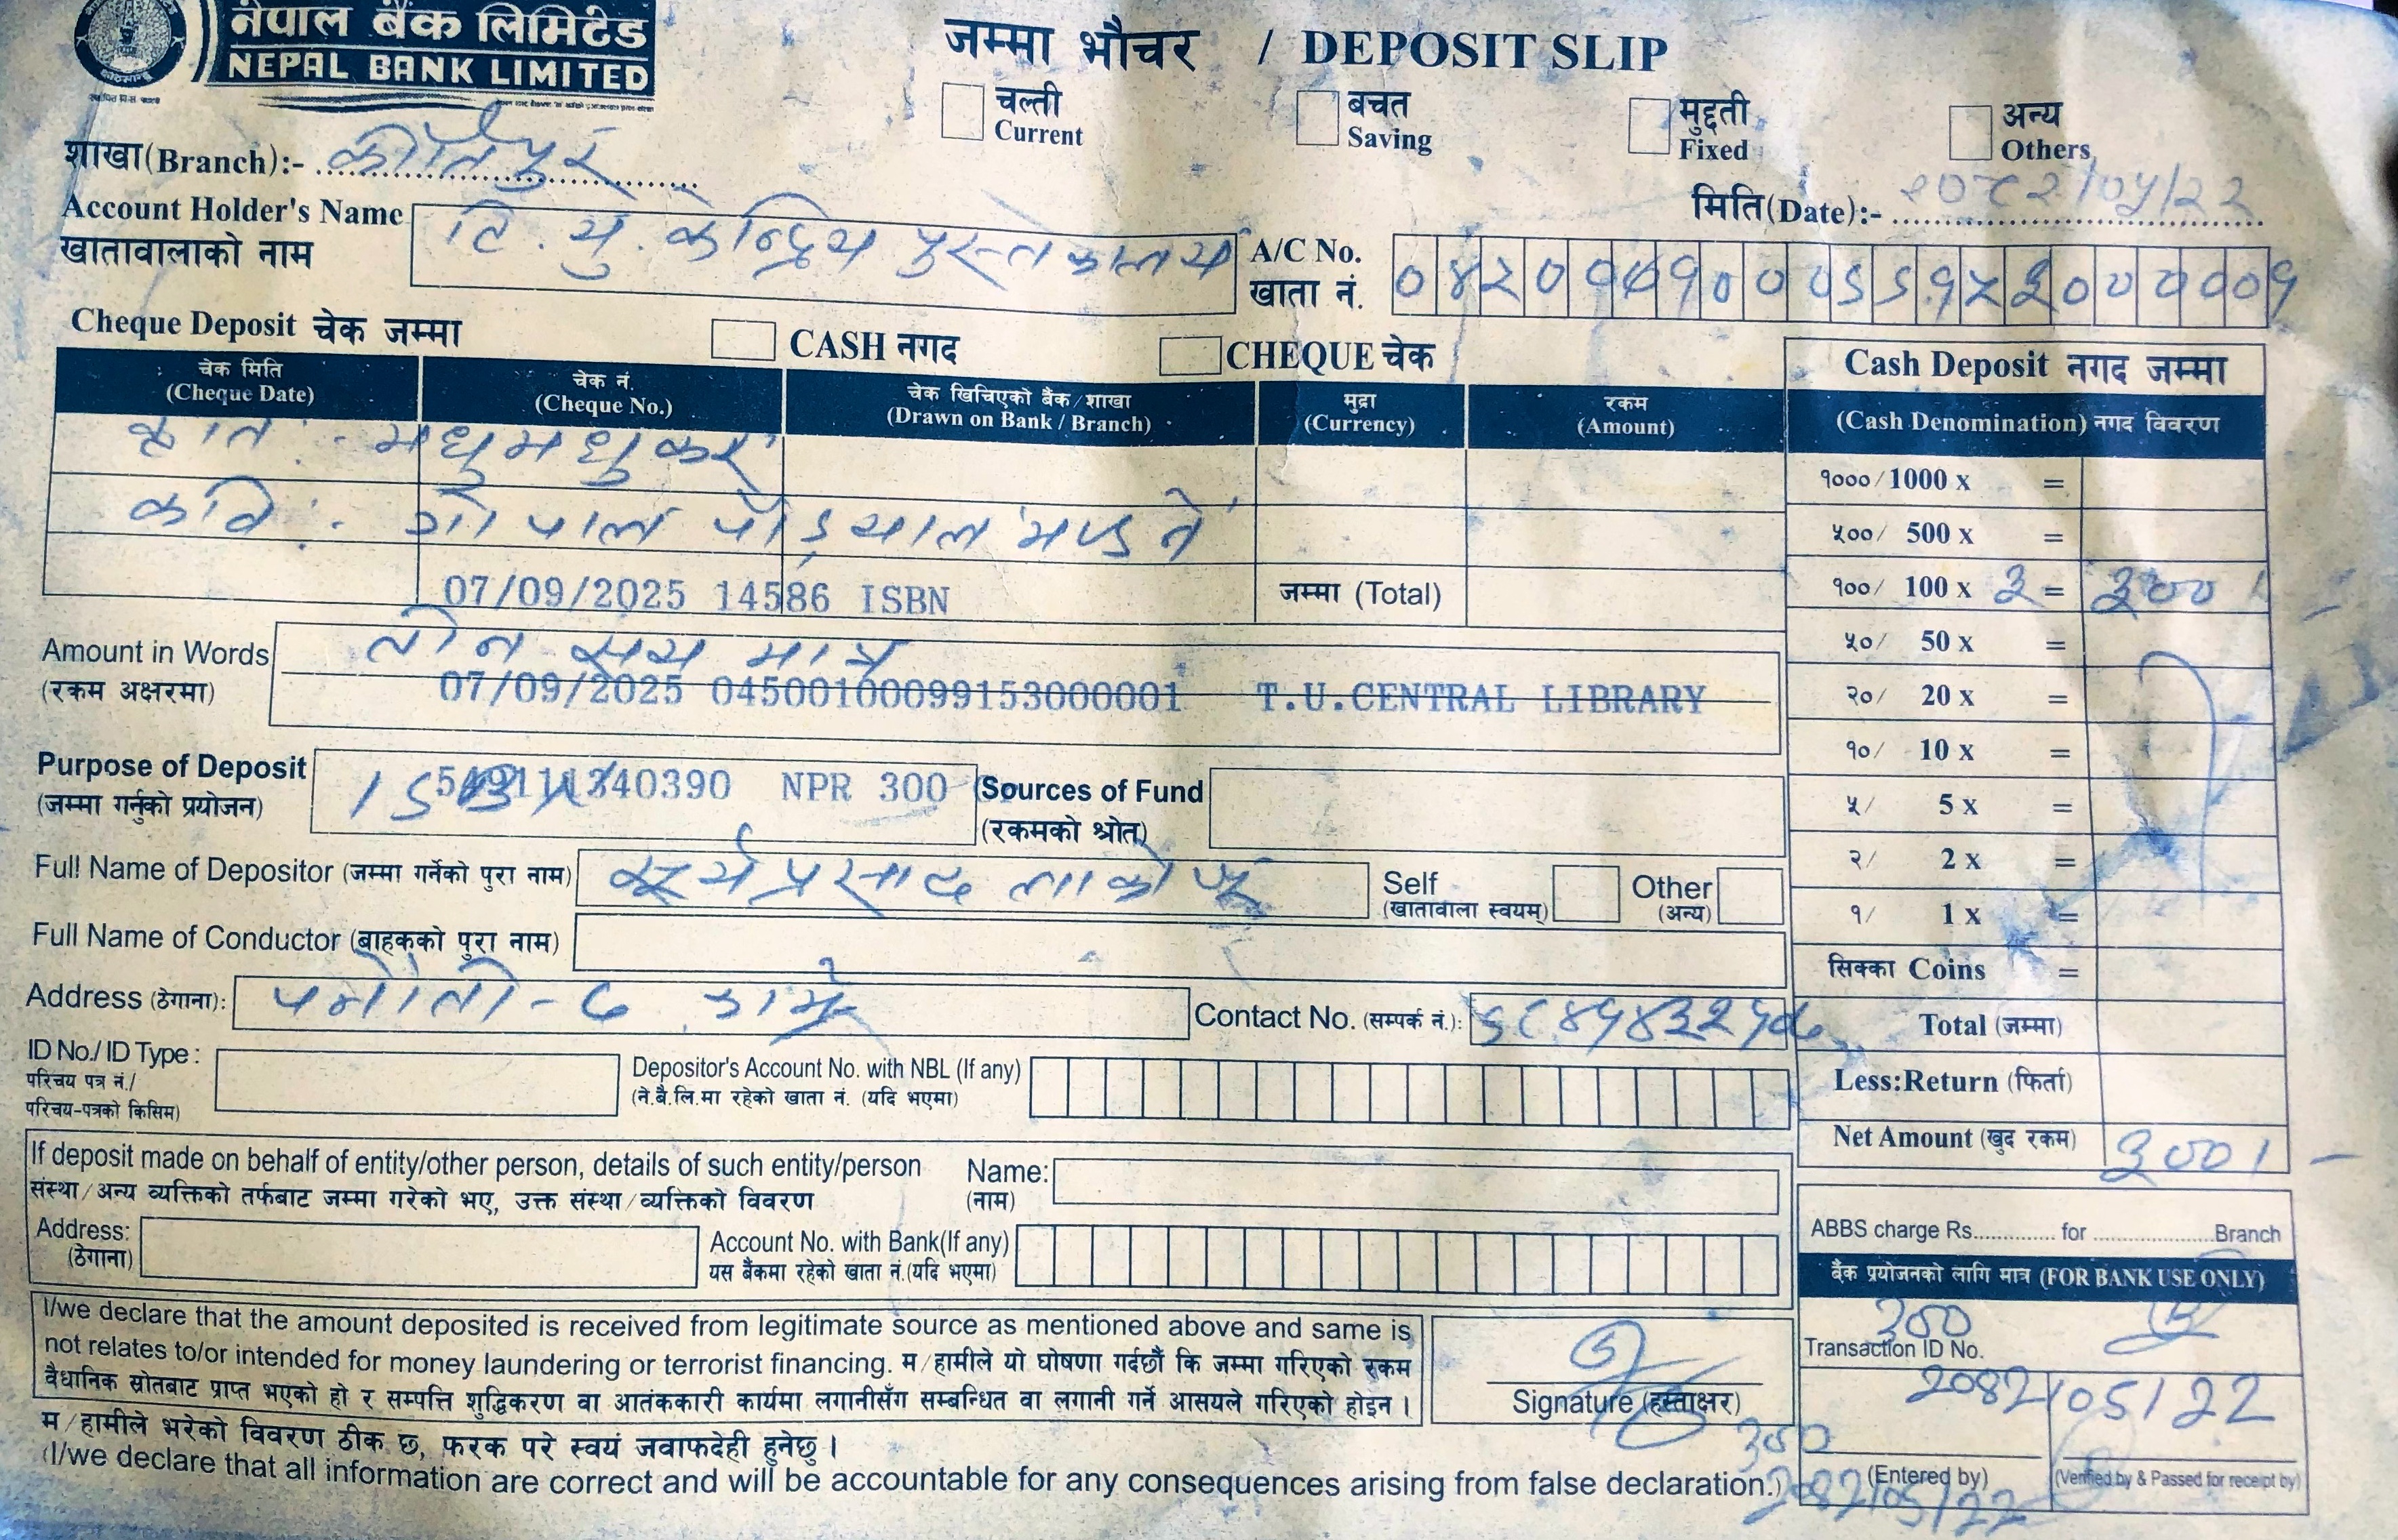 नेपाल बैंक लिमिटेड
NEPAL BANK LIMITED
जम्मा भौचर / DEPOSIT SLIP
चल्ती
Current
बचत
Saving
मुद्दती
Fixed
अन्य
Others
शाखा(Branch):- कीर्तिपुर
मिति(Date):- २०८२/०५/२२
Account Holder's Name
खातावालाको नाम
टि. यु. केन्द्रिय पुस्तकालय
A/C No.
खाता नं.
Cheque Deposit चेक जम्मा
CASH नगद
CHEQUE चेक
चेक मिति
(Cheque Date)
चेक नं.
(Cheque No.)
चेक खिचिएको बैंक/शाखा
(Drawn on Bank / Branch)
मुद्रा
(Currency)
रकम
(Amount)
कृति :- मधुमधुकर
कवि :- गोपाल पौड्याल 'मण्डने'
07/09/2025 14586 ISBN
जम्मा (Total)
Amount in Words
(रकम अक्षरमा)
तीन सय मात्र
07/09/2025 04500100099153000001 T.U.CENTRAL LIBRARY
Purpose of Deposit
(जम्मा गर्नुको प्रयोजन)
ISBN
40390 NPR 300
Sources of Fund
(रकमको श्रोत)
Full Name of Depositor (जम्मा गर्नेको पुरा नाम)
सूर्यप्रसाद लाकोजू
Self
(खातावाला स्वयम्)
Other
(अन्य)
Full Name of Conductor (बाहकको पुरा नाम)
Address (ठेगाना):
पनौती-८ काभ्रे
Contact No. (सम्पर्क नं.):
ID No./ ID Type :
परिचय पत्र नं./
परिचय-पत्रको किसिम)
Depositor's Account No. with NBL (If any)
(ने.बै.लि.मा रहेको खाता नं. (यदि भएमा)
If deposit made on behalf of entity/other person, details of such entity/person
संस्था/अन्य व्यक्तिको तर्फबाट जम्मा गरेको भए, उक्त संस्था/व्यक्तिको विवरण
Name:
(नाम)
Address:
(ठेगाना)
Account No. with Bank(If any)
यस बैंकमा रहेको खाता नं.(यदि भएमा)
I/we declare that the amount deposited is received from legitimate source as mentioned above and same is
not relates to/or intended for money laundering or terrorist financing. म/हामीले यो घोषणा गर्दछौं कि जम्मा गरिएको रकम
वैधानिक स्रोतबाट प्राप्त भएको हो र सम्पत्ति शुद्धिकरण वा आतंककारी कार्यमा लगानीसँग सम्बन्धित वा लगानी गर्ने आसयले गरिएको होइन।
Signature (हस्ताक्षर)
म/हामीले भरेको विवरण ठीक छ, फरक परे स्वयं जवाफदेही हुनेछु।
(I/we declare that all information are correct and will be accountable for any consequences arising from false declaration.)
300
2082/05/22
Cash Deposit नगद जम्मा
(Cash Denomination) नगद विवरण
१०००/ 1000 x =
५००/ 500 x =
१००/ 100 x ३ = ३००/-
५०/ 50 x =
२०/ 20 x =
१०/ 10 x =
५/ 5 x =
२/ 2 x =
१/ 1 x =
सिक्का Coins =
Total (जम्मा)
Less:Return (फिर्ता)
Net Amount (खुद रकम) ३००/-
ABBS charge Rs.............. for .....................Branch
बैंक प्रयोजनको लागि मात्र (FOR BANK USE ONLY)
300
Transaction ID No.
2082/05/22
(Entered by)
(Verified by & Passed for receipt by)